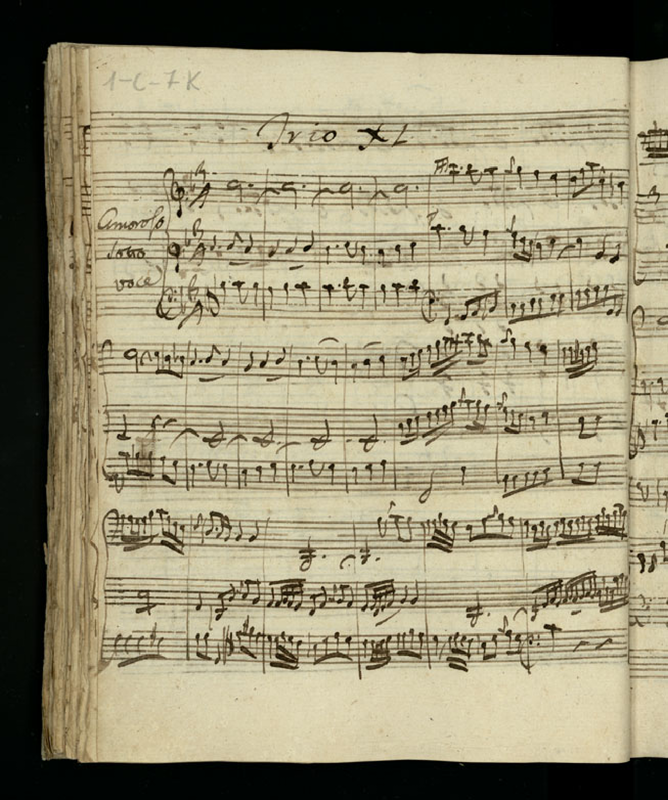 1-C-7K
Trio XL
Amoroso
sotto
voce